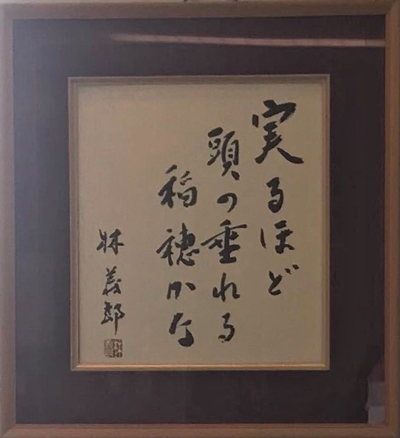 実るほど
頭の垂れる
稲穂かな
林義郎